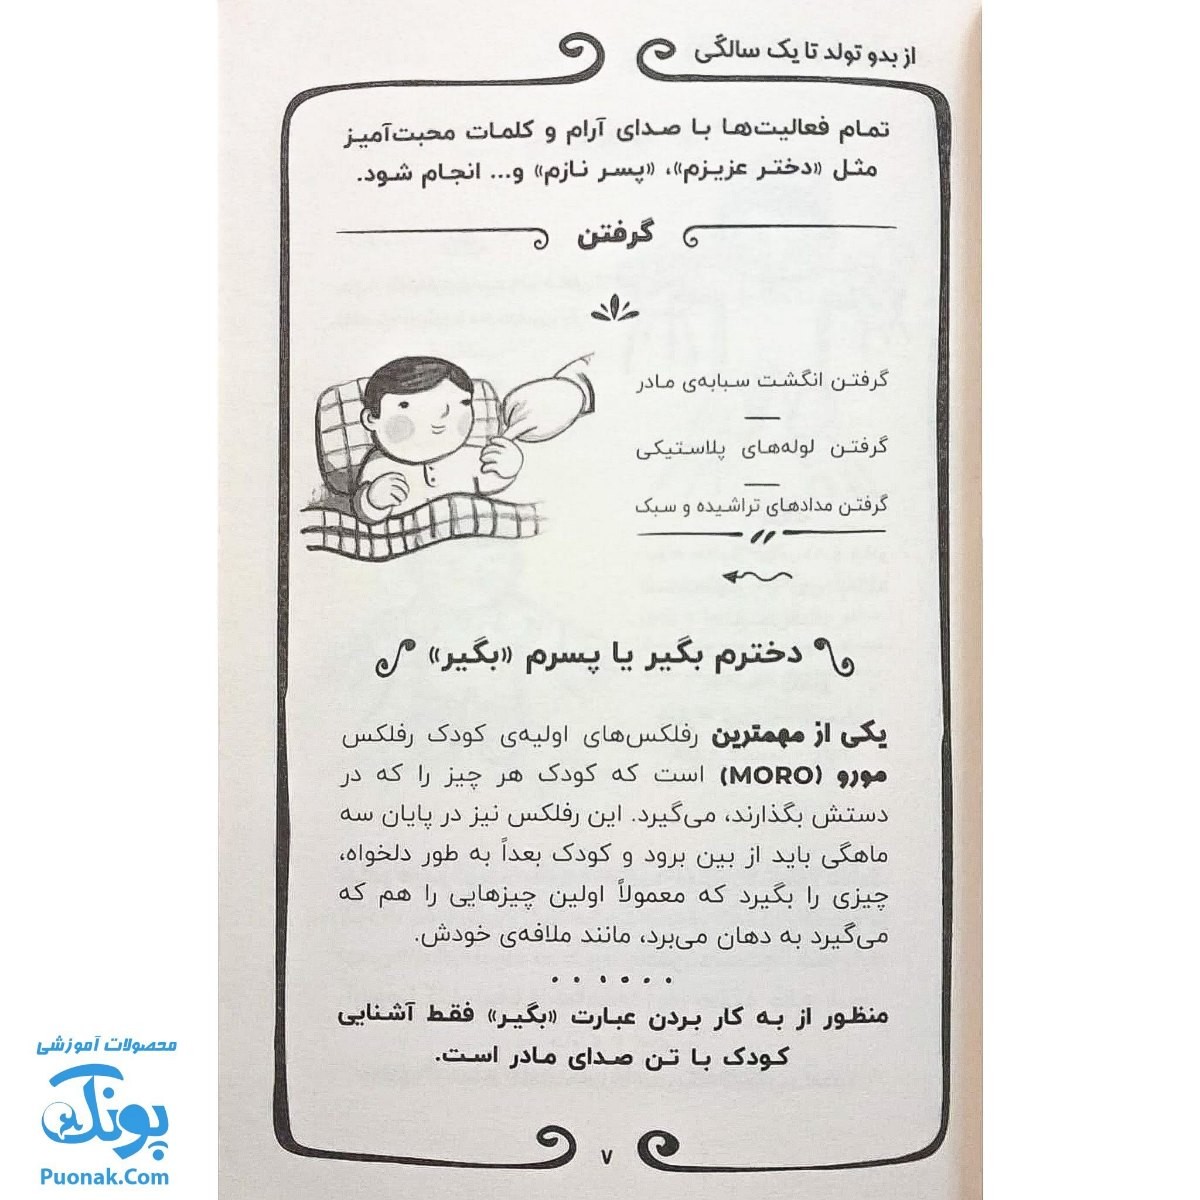 از بدو تولد تا یک سالگی
تمام فعالیت‌ها با صدای آرام و کلمات محبت‌آمیز
مثل «دختر عزیزم»، «پسر نازم» و... انجام شود.
گرفتن
گرفتن انگشت سبابه‌ی مادر
گرفتن لوله‌های پلاستیکی
گرفتن مدادهای تراشیده و سبک
دخترم بگیر یا پسرم «بگیر»
یکی از مهمترین رفلکس‌های اولیه‌ی کودک رفلکس
مورو (MORO) است که کودک هر چیز را که در
دستش بگذارند، می‌گیرد. این رفلکس نیز در پایان سه
ماهگی باید از بین برود و کودک بعداً به طور دلخواه،
چیزی را بگیرد که معمولاً اولین چیزهایی را هم که
می‌گیرد به دهان می‌برد، مانند ملافه‌ی خودش.
منظور از به کار بردن عبارت «بگیر» فقط آشنایی
کودک با تن صدای مادر است.
۷
محصولات آموزشی
پونک
Puonak.Com